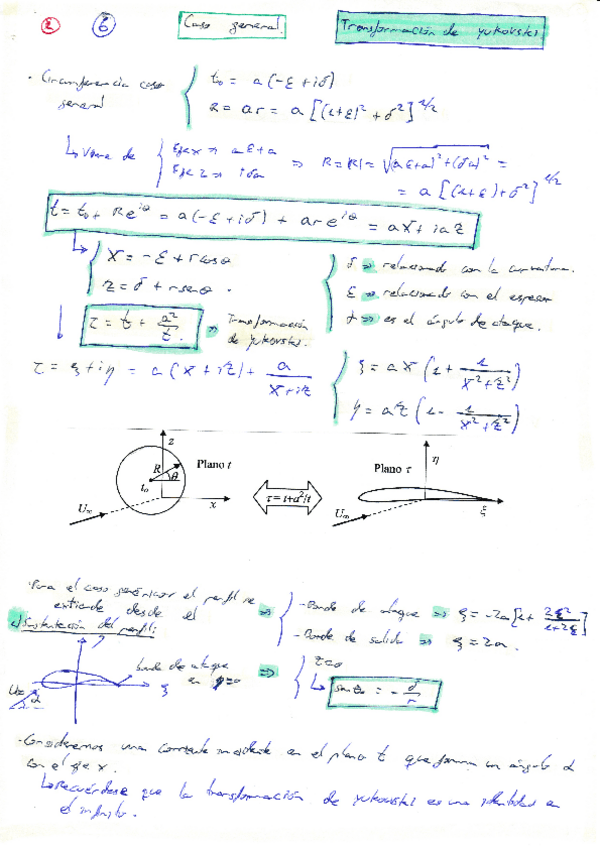 2 6 Caso general. Transformación de yukovski
· Circunferencia caso general { t₀ = a(-ε+iδ)
R = ar = a[(1+ε)²+δ²]^{1/2}
↳ Viene de { Eje x ⇒ aε+a
Eje z ⇒ iδa ⇒ R=|R|= √((aε+a)²+(δa)²) =
= a[(1+ε)+δ²]^{1/2}
t = t₀ + Re^{iθ} = a(-ε+iδ) + are^{iθ} = aX+iaz
↳ { X = -ε + r cosθ
z = δ + r senθ.
{ δ ⇒ relacionado con la curvatura.
ε ⇒ relacionado con el espesor
α ⇒ es el ángulo de ataque.
↓ τ = t + a²/t. ⇒ Transformación de yukovski.
τ = ξ+iη = a(X+iz) + a/(X+iz)
{ ξ = aX(1 + 1/(X²+z²))
η = az(1 - 1/(X²+z²))
z
R θ Plano t
t₀
U∞ x
τ=t+a²/t
η
Plano τ
U∞ ξ
· Para el caso genérico el perfil se
extiende desde el ⇒ { - Borde de ataque ⇒ ξ = -2a[1 + 2ε²/(1+2ε)]
- Borde de salida ⇒ ξ = 2a.
Sustentación del perfil:
borde de ataque
U∞ α ξ en =0 ⇒ {
↳ sen = -δ/r
- Consideremos una corriente incidente en el plano t que forma un ángulo α
con el eje x.
↳ Recuérdese que la transformación de yukovski es una identidad en
el infinito.